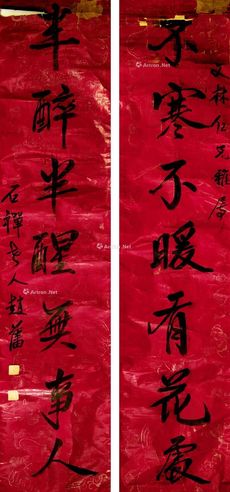 文林仁兄雅屬
不寒不暖看花處
半醉半醒無事人
石禪老人趙藩
Artron.Net
Artron.Net
Artron.Net
Artron.Net